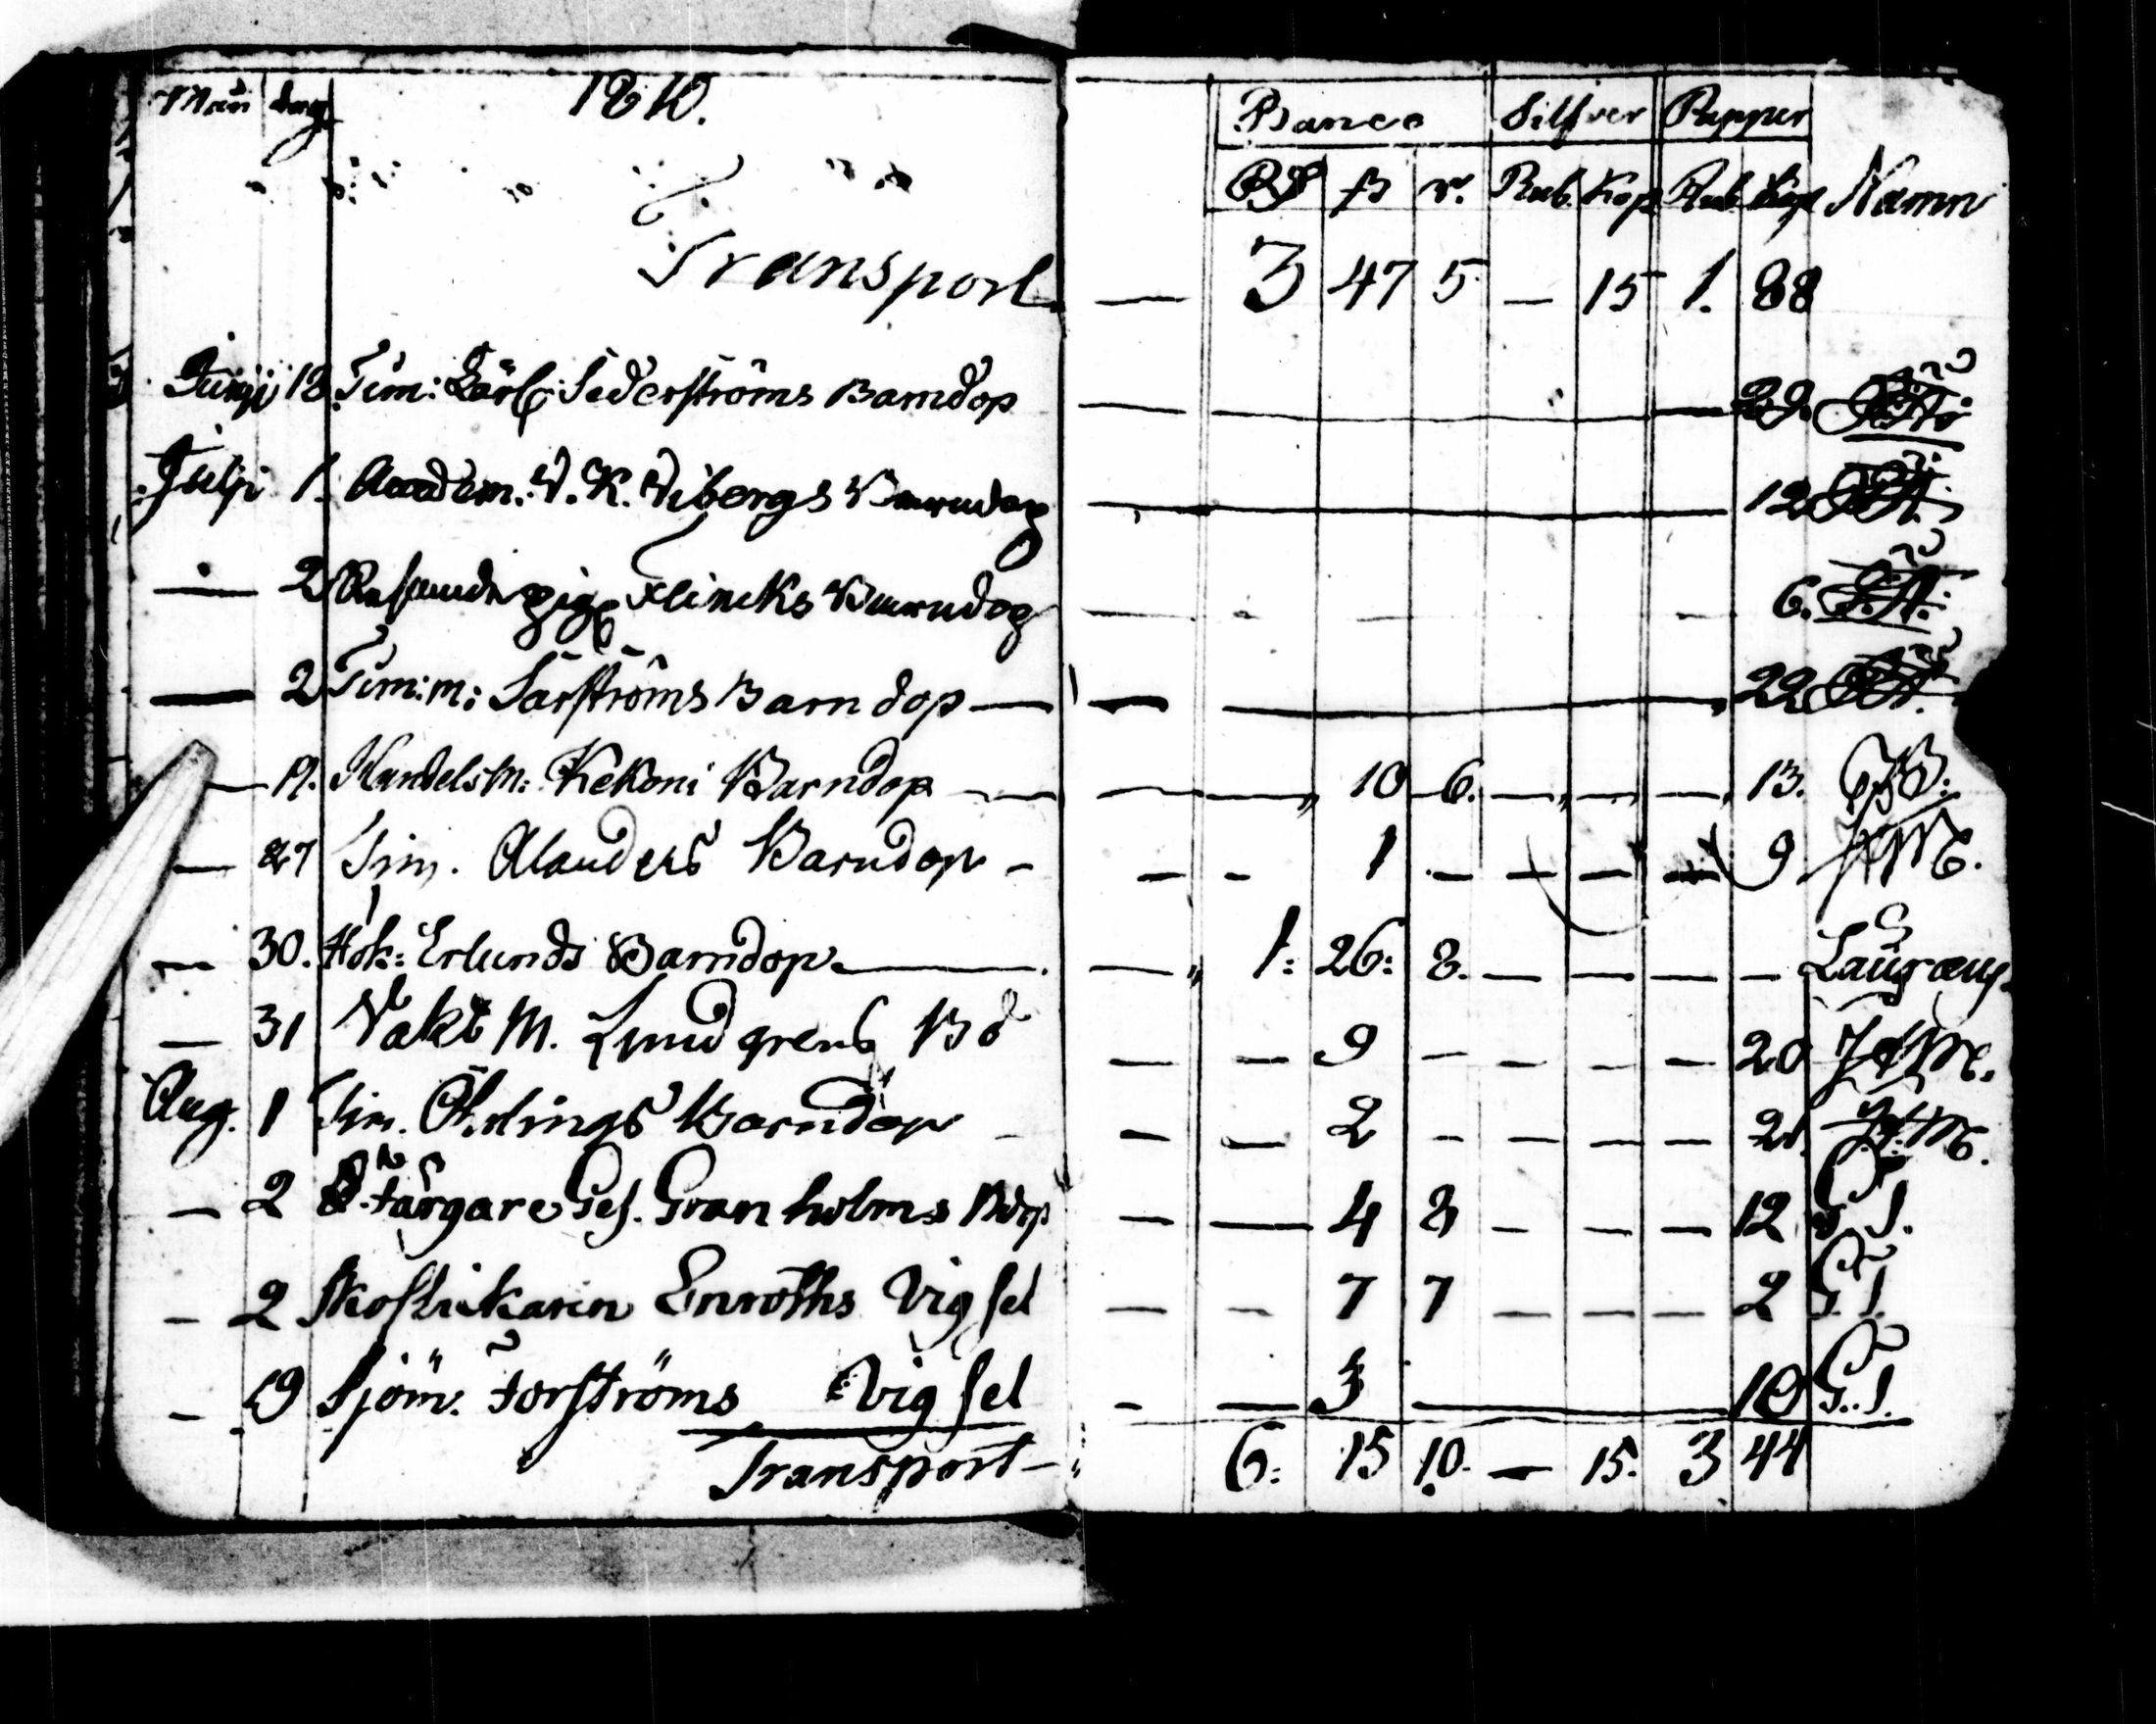 Mån dag 1810. Banco Silfver Papper
R ß r. Rub. Kop Rub. Kop Namn
Transport — 3 47 5 — 15 1. 88
Junji 18. Tim: Sederströms Barndop — 29.
Julji 1. Academ: V. K. Vibergs Barndop — 12
— 2 Flincks Barndop — — — — 6.
— 2 Tim:m: Särströms Barndop — — 22
— 19. HandelsM: Kekoni Barndop — — — „ 10 6. — „ — „ — „ 13. JB.
— 27 Tim. Alanders Barndop — — — 1 — — — — 9
— 30. Hök: Erlunds Barndop. — — „ 1: 26: 8. — — — —
— 31 Vakt M. Lundgrens Bd — — 9 — — — — 20
Aug. 1 Tim. Öhrlings Barndop — — — 2 — — — — 21.
— 2 Färgare Ges. Granholms Bdop — — 4 8 — — — 12 G. I.
— 2 Skoflickaren Enroths Vigsel — — 7 7 — — — 2 G. I.
— 19 Sjöm. Forströms Vigsel — — 3 — 10 G. I.
Transport — 6: 15 10. — 15. 3 44